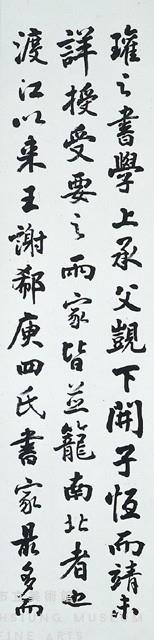 瓘之書學上承父覬下開子恆而靖未
詳授受要之兩家皆並籠南北者也
渡江以來王謝郗庾四氏書家最多而